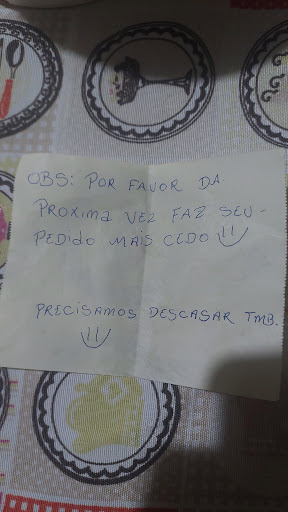 OBS: POR FAVOR DA
PROXIMA VEZ FAZ SEU
PEDIDO MAIS CEDO
PRECISAMOS DESCASAR TMB.